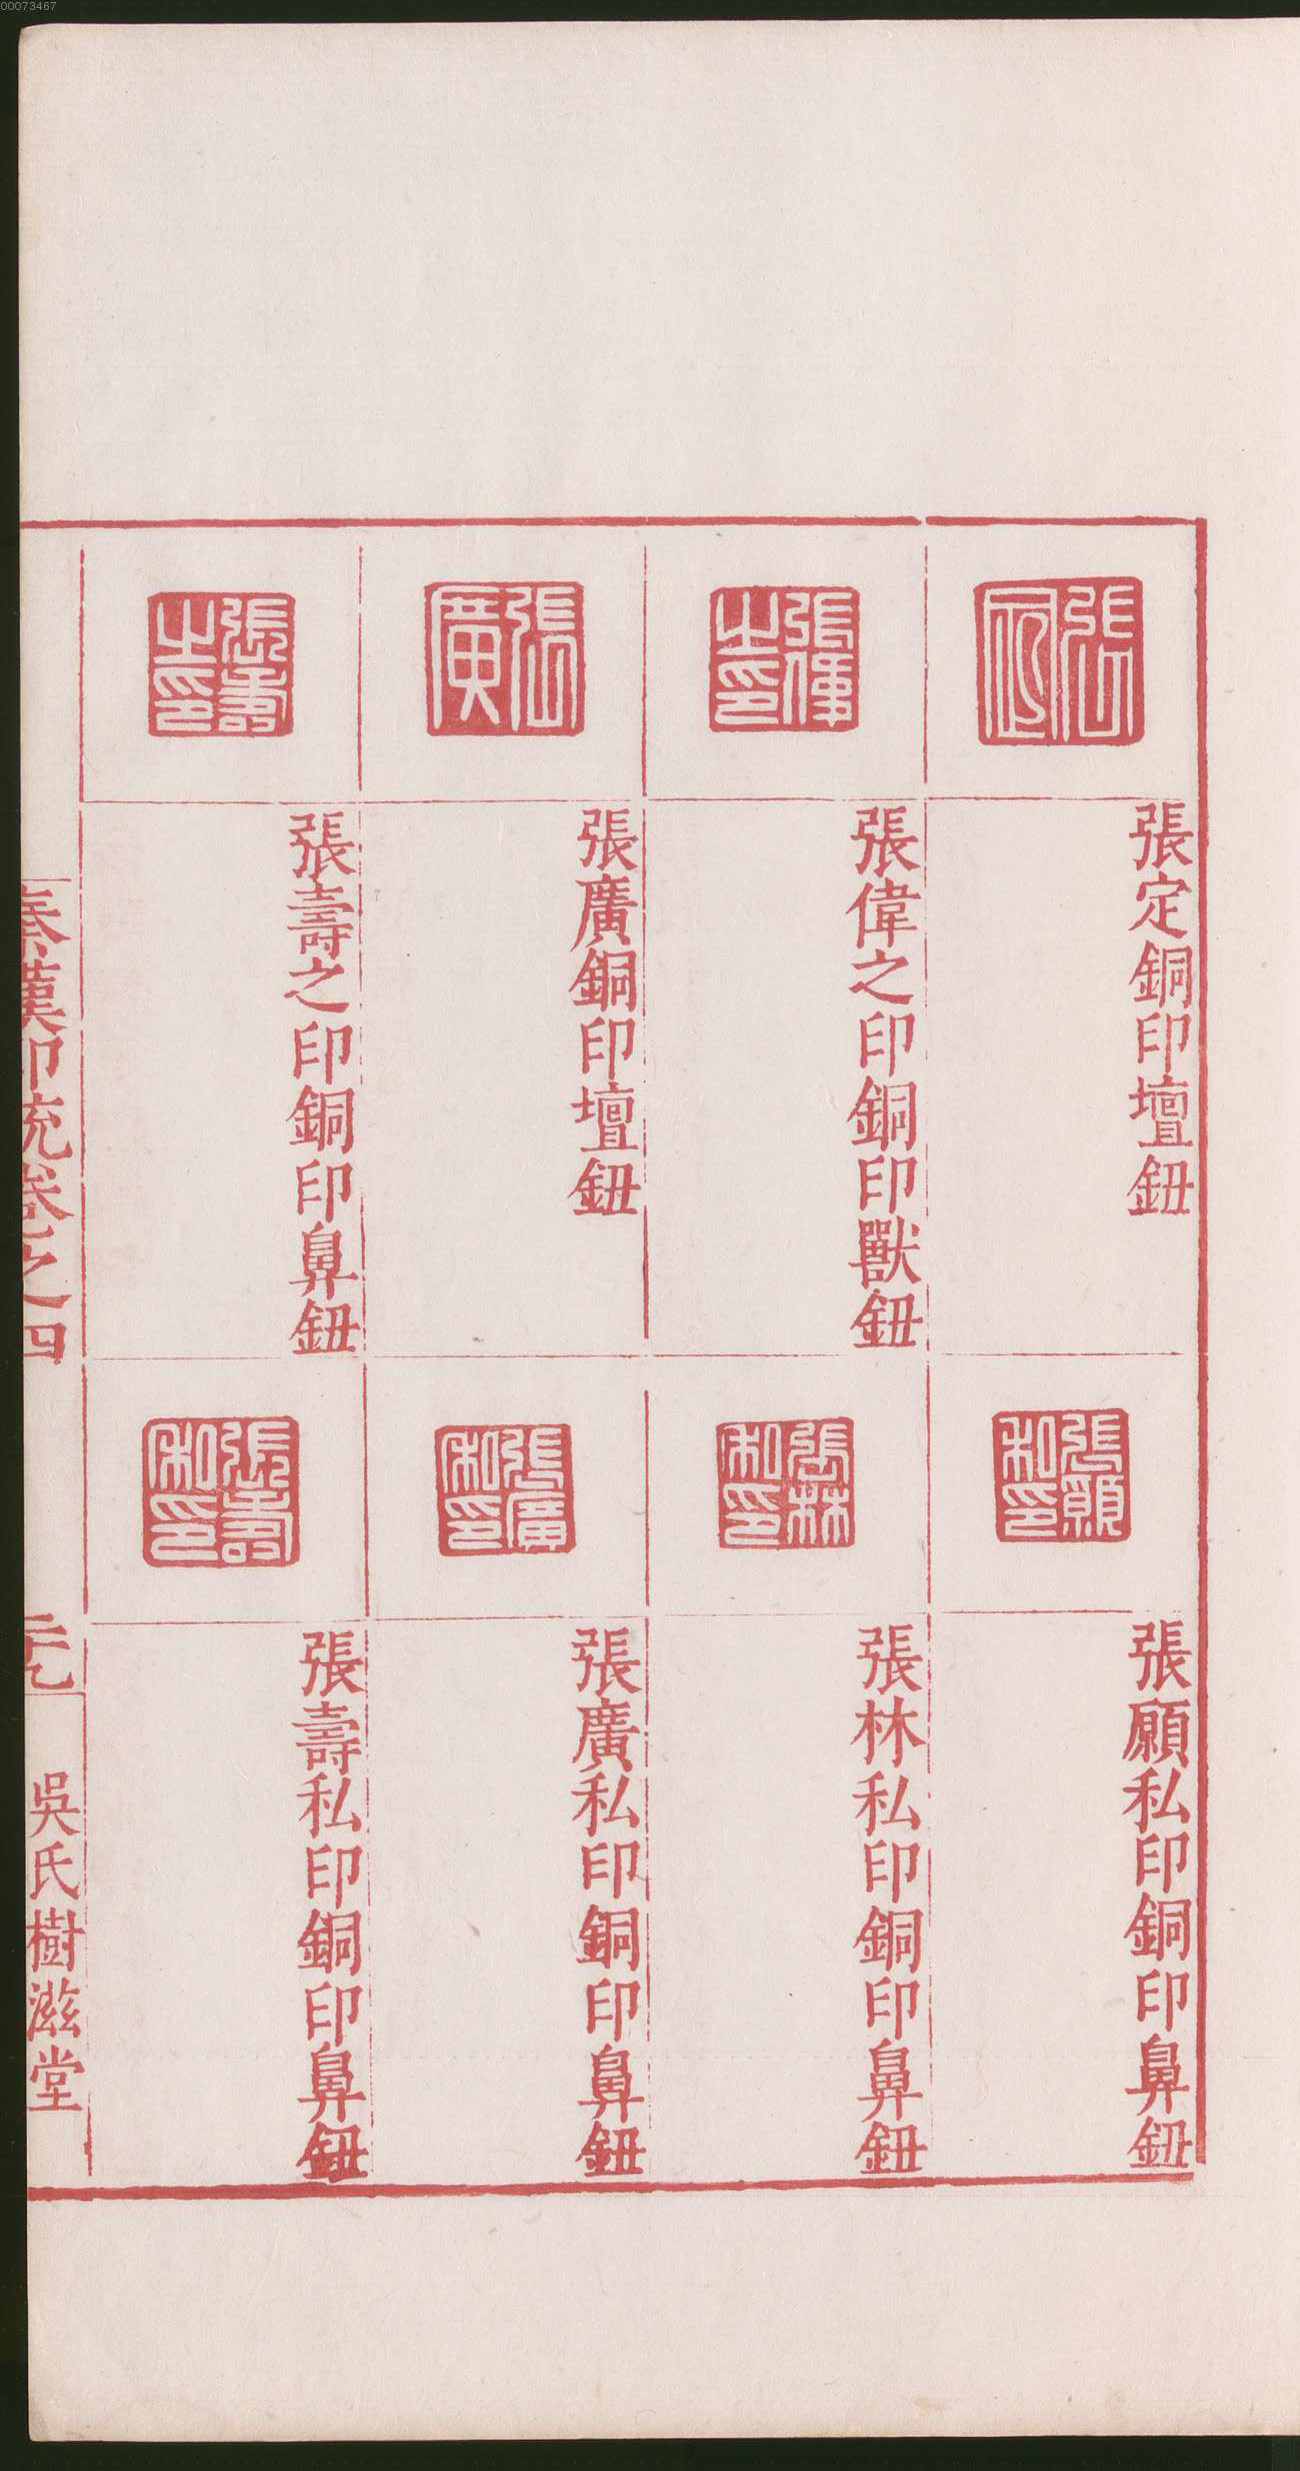 00073467
張定
張定銅印壇鈕
張偉之印
張偉之印銅印獸鈕
張廣
張廣銅印壇鈕
張壽之印
張壽之印銅印鼻鈕
張願私印
張願私印銅印鼻鈕
張林私印
張林私印銅印鼻鈕
張廣私印
張廣私印銅印鼻鈕
張壽私印
張壽私印銅印鼻鈕
秦漢印統卷之四
吳氏樹滋堂